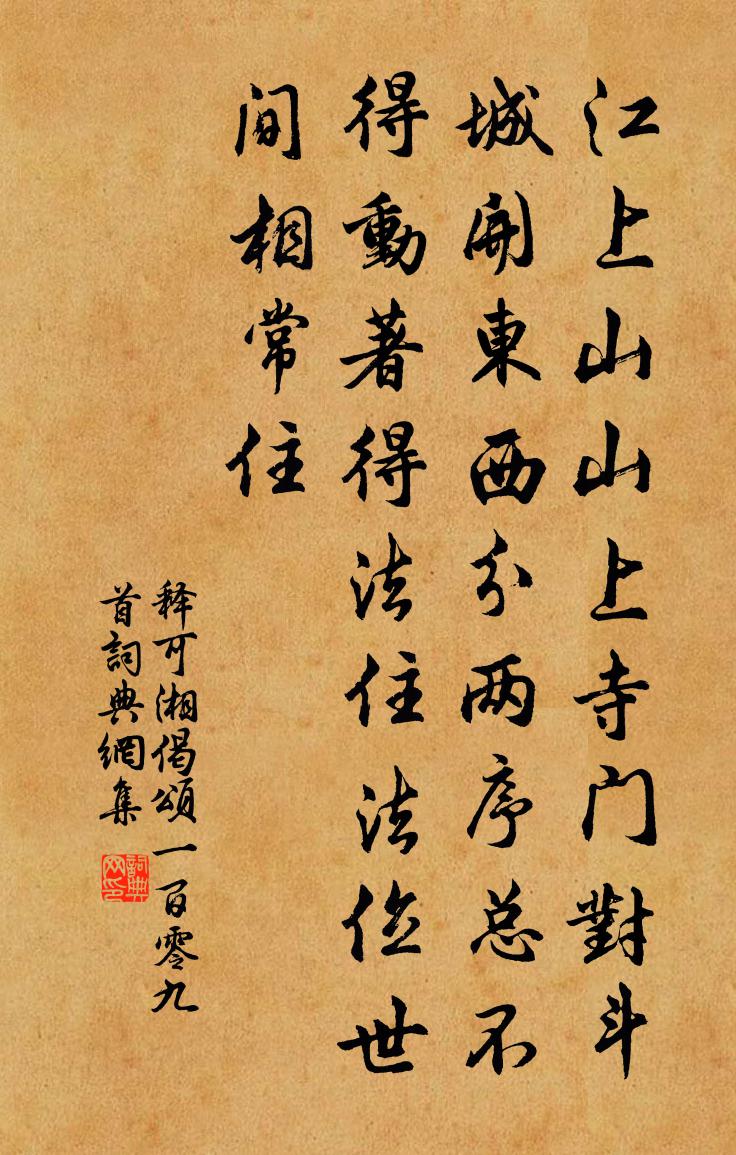 江上山山上寺門對斗
城開東西分两序总不
得動著得法住法位世
間相常住
释可湘偈頌一百零九
首詞典網集
詞典
网印